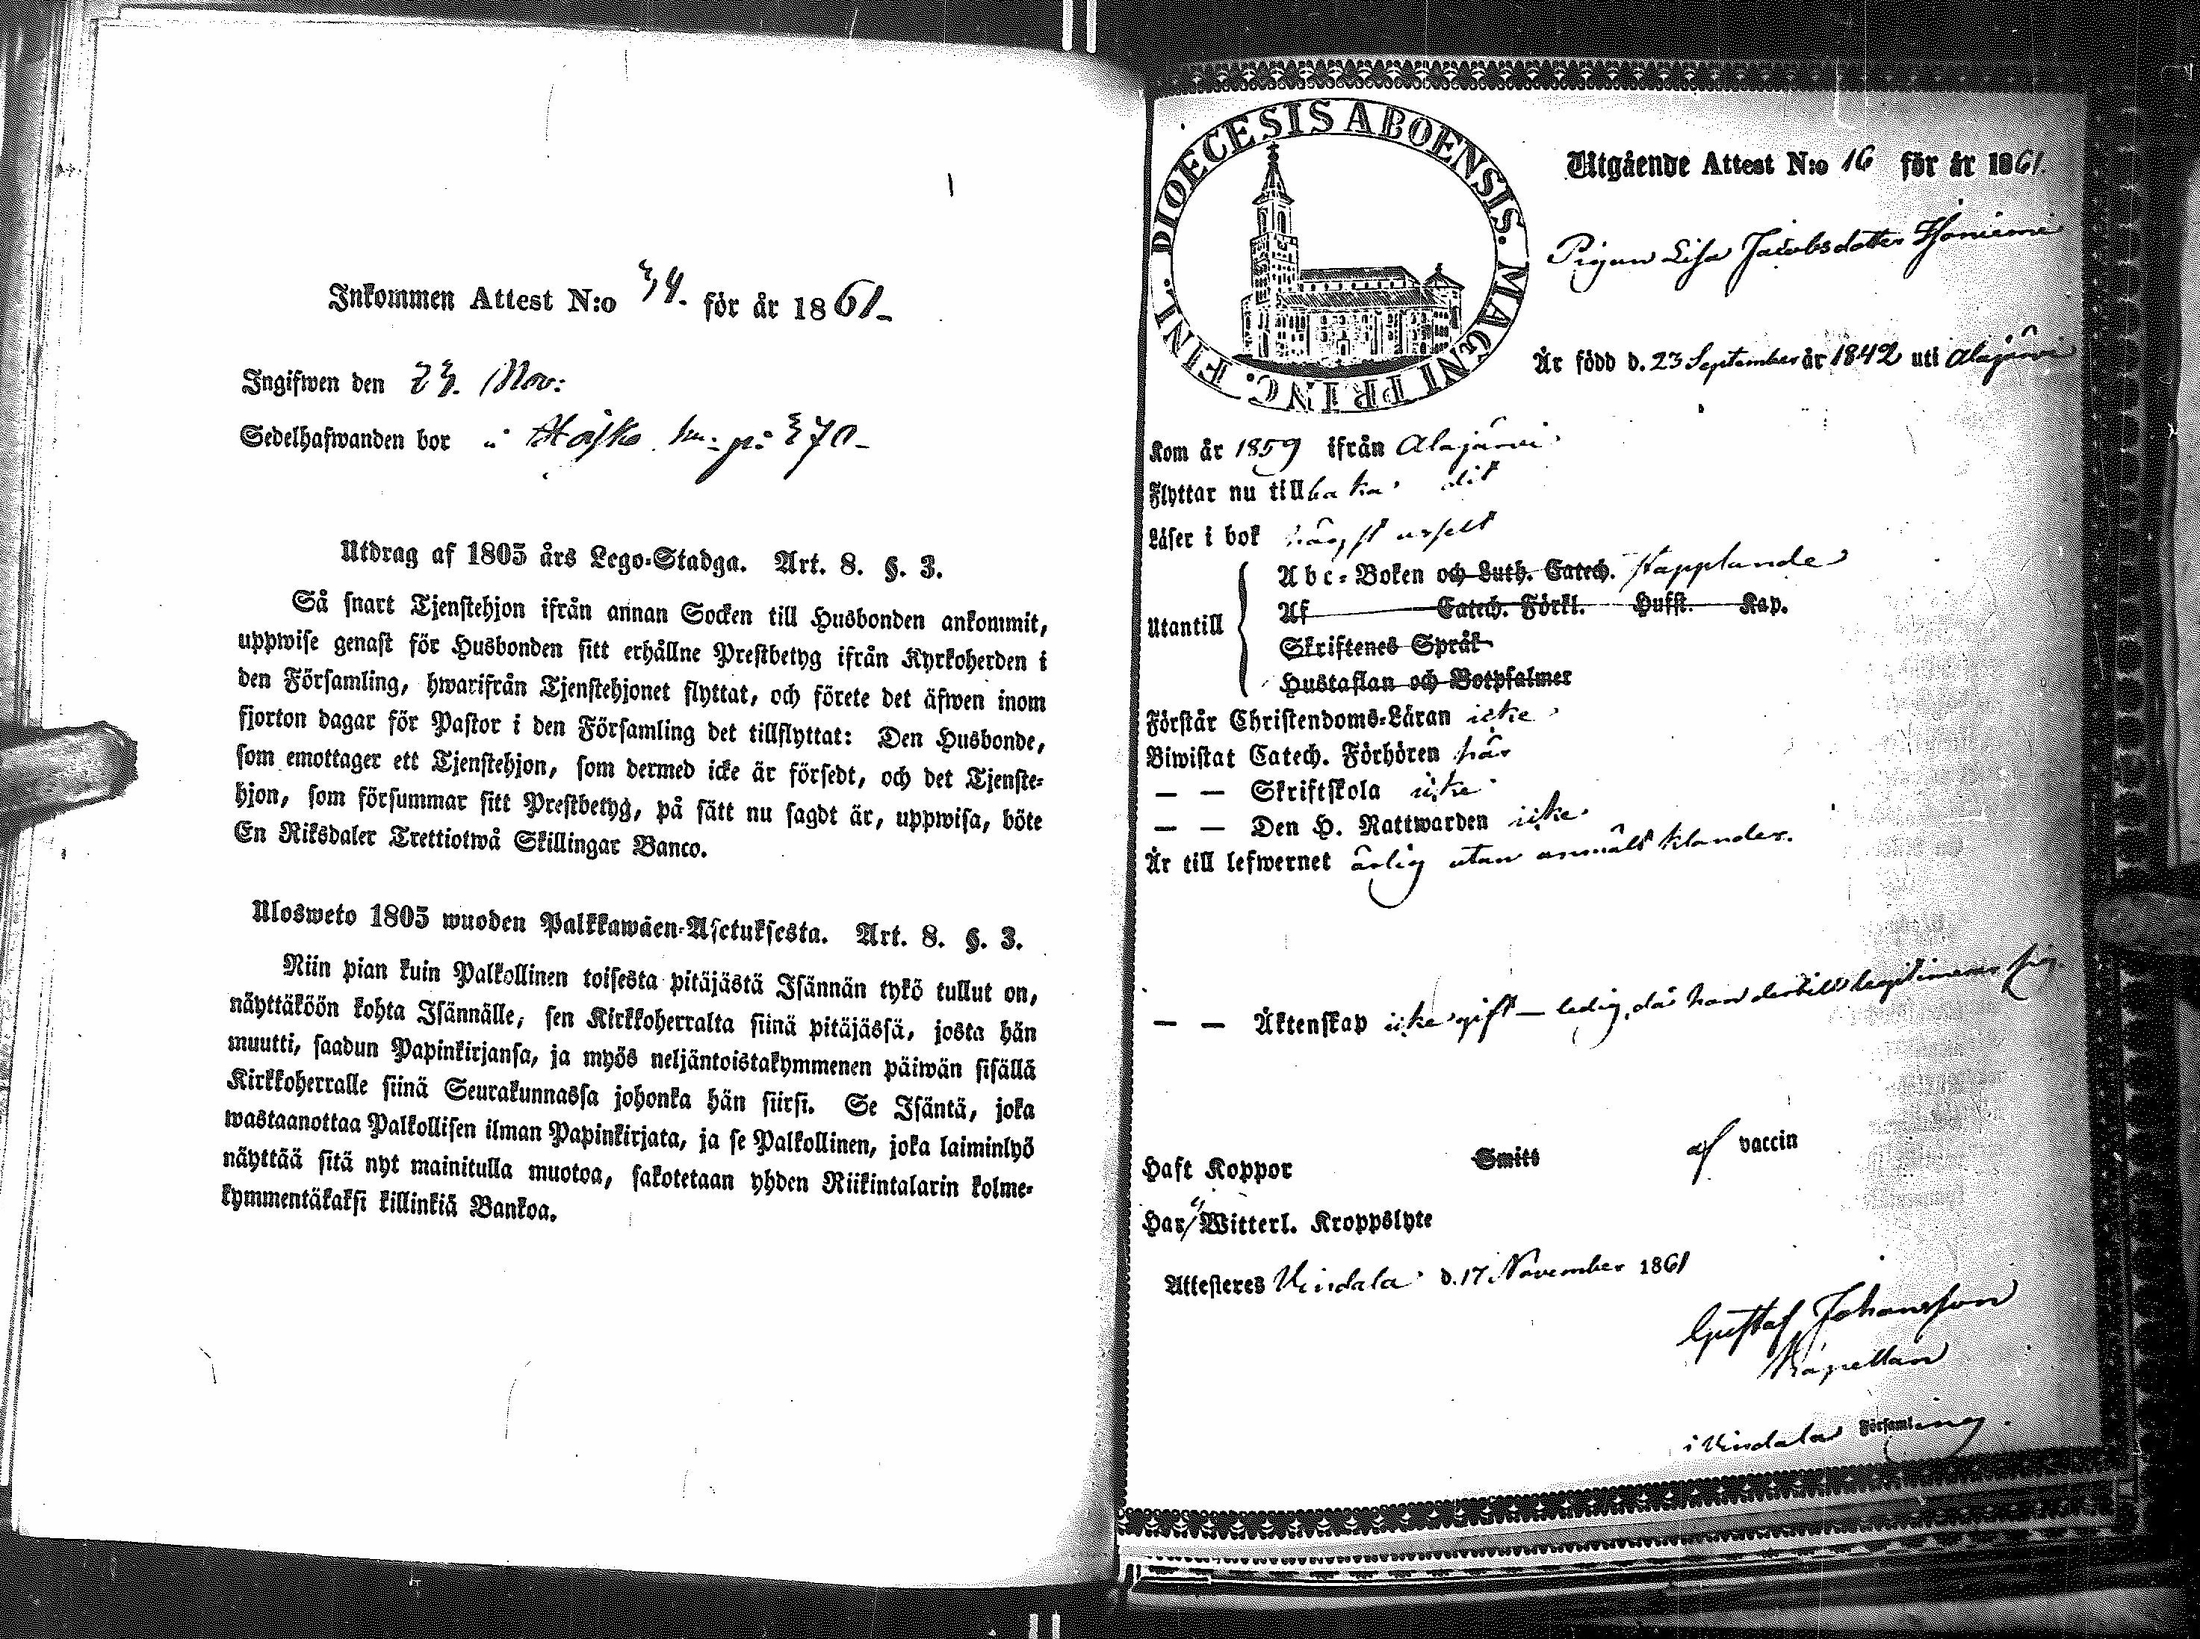 Inkommen Attest N:o 34. för år 1861
Ingifwen den 23. Nov:
Sedelhafwanden bor i Höisko
Utdrag af 1805 års Lego-Stadga. Art. 8. §. 3.
Så snart Tjenstehjon ifrån annan Socken till Husbonden ankommit,
uppwise genast för Husbonden sitt erhållne Prestbetyg ifrån Kyrkoherden i
den Församling, hwarifrån Tjenstehjonet flyttat, och förete det äfwen inom
fjorton dagar för Pastor i den Församling det tillflyttat: Den Husbonde,
som emottager ett Tjenstehjon, som dermed icke är försedt, och det Tjenste-
hjon, som försummar sitt Prestbetyg, på sätt nu sagdt är, uppwisa, böte
En Riksdaler Trettiotwå Skillingar Banco.
Ulosweto 1805 wuoden Palkkawäen-Asetuksesta. Art. 8. §. 3.
Niin pian kuin Palkollinen toisesta pitäjästä Isännän tykö tullut on,
näyttäköön kohta Isännälle, sen Kirkkoherralta siinä pitäjässä, josta hän
muutti, saadun Papinkirjansa, ja myös neljäntoistakymmenen päiwän sisällä
Kirkkoherralle siinä Seurakunnassa johonka hän siirsi. Se Isäntä, joka
wastaanottaa Palkollisen ilman Papinkirjata, ja se Palkollinen, joka laiminlyö
näyttää sitä nyt mainitulla muotoa, sakotetaan yhden Riikintalarin kolme-
kymmentäkaksi killinkiä Bankoa.
DIOECESIS ABOENSIS. MAGNI PRINC. FINL.
Utgående Attest N:o 16 för år 1861.
Pigan Lisa Jacobsdotter
Är född d. 23 September år 1842 uti Alajärvi
Kom år 1859 ifrån Alajärvi
Flyttar nu tillbaka dit
Läser i bok högst uselt
Utantill
Abc-Boken och Luth. Catech. stapplande
Af Catech. Förkl. Husst. Kap.
Skriftenes Språk
Hustaflan och Botpsalmer
Förstår Christendoms-Läran icke
Biwistat Catech. Förhören här
— — Skriftskola icke
— — Den H. Nattwarden icke
Är till lefwernet ärlig utan anmäldt klander.
— — Äktenskap icke gift — ledig, då hon dertill legitimerar sig.
Haft Koppor Smitt af vaccin
Har ej Witterl. Kroppslyte
Attesteres Vindala d. 17 November 1861
Gustaf Johansson
Kapellan
i Vindala Församling.